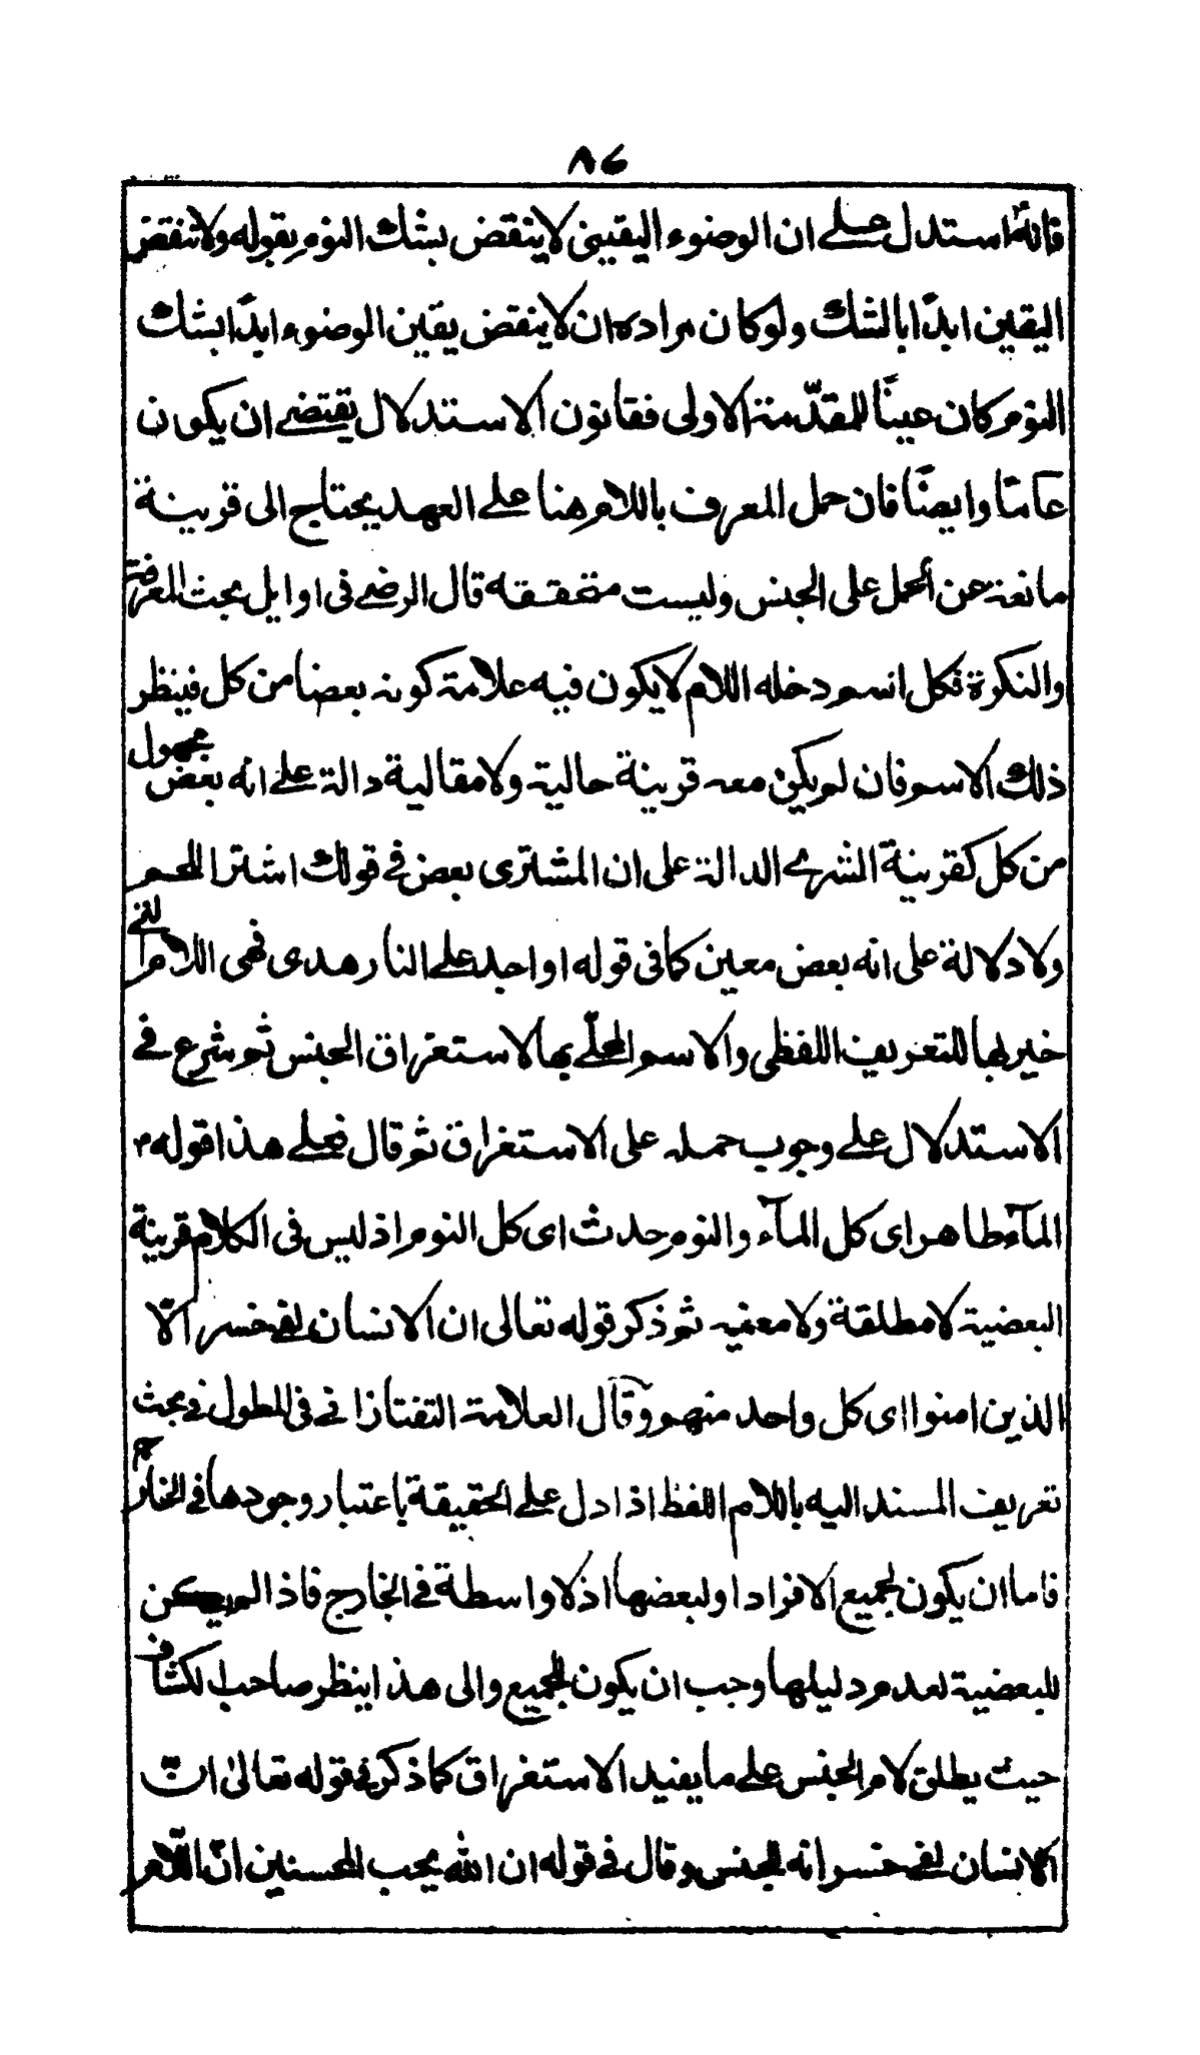 ٨٤
فانه استدل على ان الوضوء اليقيني لا ينقض بشك النوم بقوله ولا تنقض
اليقين ابدًا بالشك ولو كان مراده ان لا ينقض يقين الوضوء ابدًا بشك
النوم كان عينًا للمقدّمة الاولى فقانون الاستدلال يقتضي ان يكون
عامًا وايضًا فان حمل المعرف باللام هنا على العهد يحتاج الى قرينة
مانعة عن الحمل على الجنس وليست متحققة قال الرضي في اوايل بحث المعرفة
والنكرة فكل اسم دخله اللام لا يكون فيه علامة كونه بعضا من كل فينظر
ذلك الاسم فان لم يكن معه قرينة حالية ولا مقالية دالة على انه بعض مجهول
من كل كقرينة الشرى الدالة على ان المشترى بعض في قولك اشتر اللحم
ولا دلالة على انه بعض معين كما في قوله او اجد على النار هدى فهي اللام التي
خير بها للتعريف اللفظي والاسم المحلّى بها لاستغراق الجنس ثم شرع في
الاستدلال على وجوب حمله على الاستغراق ثم قال فعلى هذا قوله م
المآء طاهر اى كل المآء والنوم حدث اى كل النوم اذ ليس في الكلام قرينة
البعضية لا مطلقة ولا معينه ثم ذكر قوله تعالى ان الانسان لفي خسر الّا
الذين امنوا اى كل واحد منهم وقال العلامة التفتازاني في المطول في بحث
تعريف المسند اليه باللام اللفظ اذا دل على الحقيقة باعتبار وجودها في الخارج
فاما ان يكون لجميع الافراد او لبعضها اذ لا واسطة في الخارج فاذا لم يكن
للبعضية لعدم دليلها وجب ان يكون للجميع والى هذا ينظر صاحب الكشاف
حيث يطلق لام الجنس على ما يفيد الاستغراق كما ذكر في قوله تعالى انّ
الانسان لفي خسر انه للجنس وقال في قوله ان الله يحب المحسنين انّ اللّام